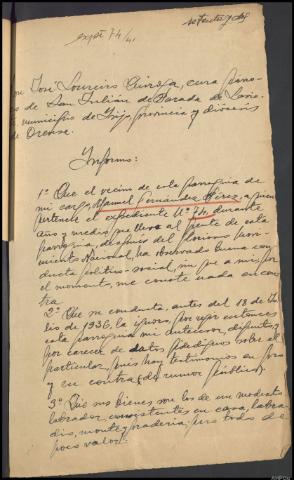 setenta y dos
expte 74/41.
José Loureiro Quiroga, cura parro-
co de San Julián de Parada de Lavio-
municipio de Irijo, provincia y diócesis
de Orense.
Informo:
1º Que el vecino de esta parroquia de
mi cargo, Manuel Fernández Pérez, a quien
pertenece el expediente Nº 74, durante
año y medio que llevo al frente de esta
parroquia, después del glorioso movi-
miento Nacional, ha observado buena con-
ducta político-social, sin que a mi, por
el momento, me conste nada en con-
tra.
2º Que su conducta, antes del 18 de Ju-
lio de 1936, la ignoro por regir entonces
esta parroquia mi antecesor, difunto, y
por carecer de datos fidedignos sobre el
particular, pues hay testimonios en pro
y en contra (de rumor público).
3º Que sus bienes son los de un modesto
labrador, consistentes en casa, labra-
dío, monte y pradería; pero todo de
poco valor.